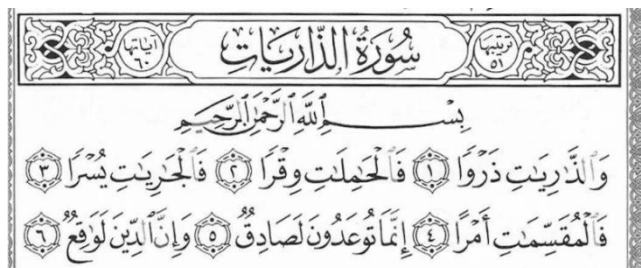 ترتيبها ٥١ سُورَةُ الذَّارِيَاتِ آياتها ٦٠
بِسْمِ ٱللَّهِ ٱلرَّحْمَٰنِ ٱلرَّحِيمِ
وَٱلذَّٰرِيَٰتِ ذَرْوًا ١ فَٱلْحَٰمِلَٰتِ وِقْرًا ٢ فَٱلْجَٰرِيَٰتِ يُسْرًا ٣
فَٱلْمُقَسِّمَٰتِ أَمْرًا ٤ إِنَّمَا تُوعَدُونَ لَصَادِقٌ ٥ وَإِنَّ ٱلدِّينَ لَوَٰقِعٌ ٦